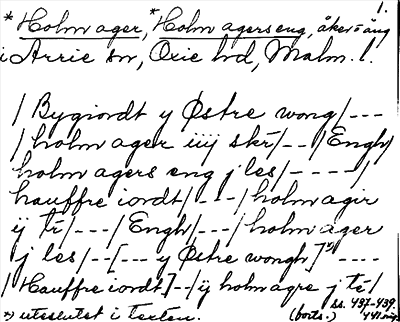 1.
*Holmager, *Holmagerseng, åker o äng
i Arrie sn, Oxie hd, Malm. l.
/Bygiordt y Østre wong/---
/holmager iiij skr̄/--/Engh/
holmagers eng j les/----/
hauffre iordt/---/holmagir
ij tr̄/---/Engh/---/holmager
j les/--[--- y Østre wongh]*)----
/Hauffre iordt]--/ij holmagre j tr̄/
ss. 437-439.
*) uteslutet i texten. (forts.)